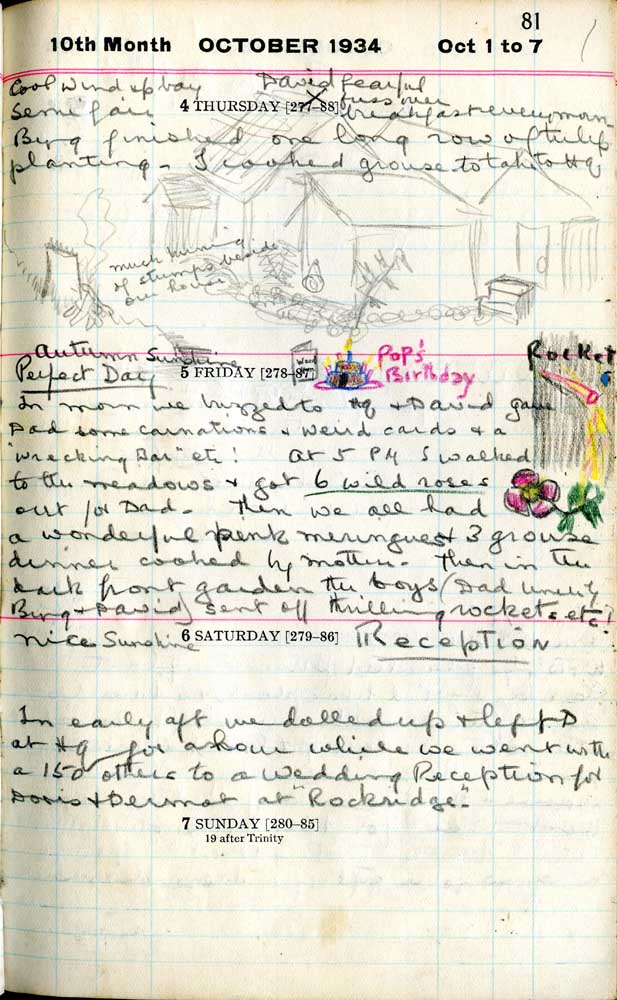 81
10th Month OCTOBER 1934 Oct 1 to 7
Cool wind up bay David fearful
Semi fair 4 THURSDAY [277–88] fuss over
breakfast every morn
Bing finished one long row of tulip
planting - I cooked grouse to take to Hq
much burning
of stumps beside
our house
Autumn Sunshine
Perfect Day 5 FRIDAY [278–87] Pop's
Birthday
Rocket
In morn we buzzed to Hq & David gave
Dad some carnations & weird cards & a
"wrecking Bar" etc! At 5 PM I walked
to the meadows & got 6 wild roses
out for Dad. Then we all had
a wonderful pink meringues & 3 grouse
dinner cooked by mother. Then in the
dark front garden the boys (Dad
Bing & David) sent off thrilling rockets etc!
Nice Sunshine 6 SATURDAY [279–86] Reception
In early aft we dolled up & left D
at Hq for a hour while we went with
a 150 others to a Wedding Reception for
Doris & Dermot at "Rockridge".
7 SUNDAY [280–85]
19 after Trinity